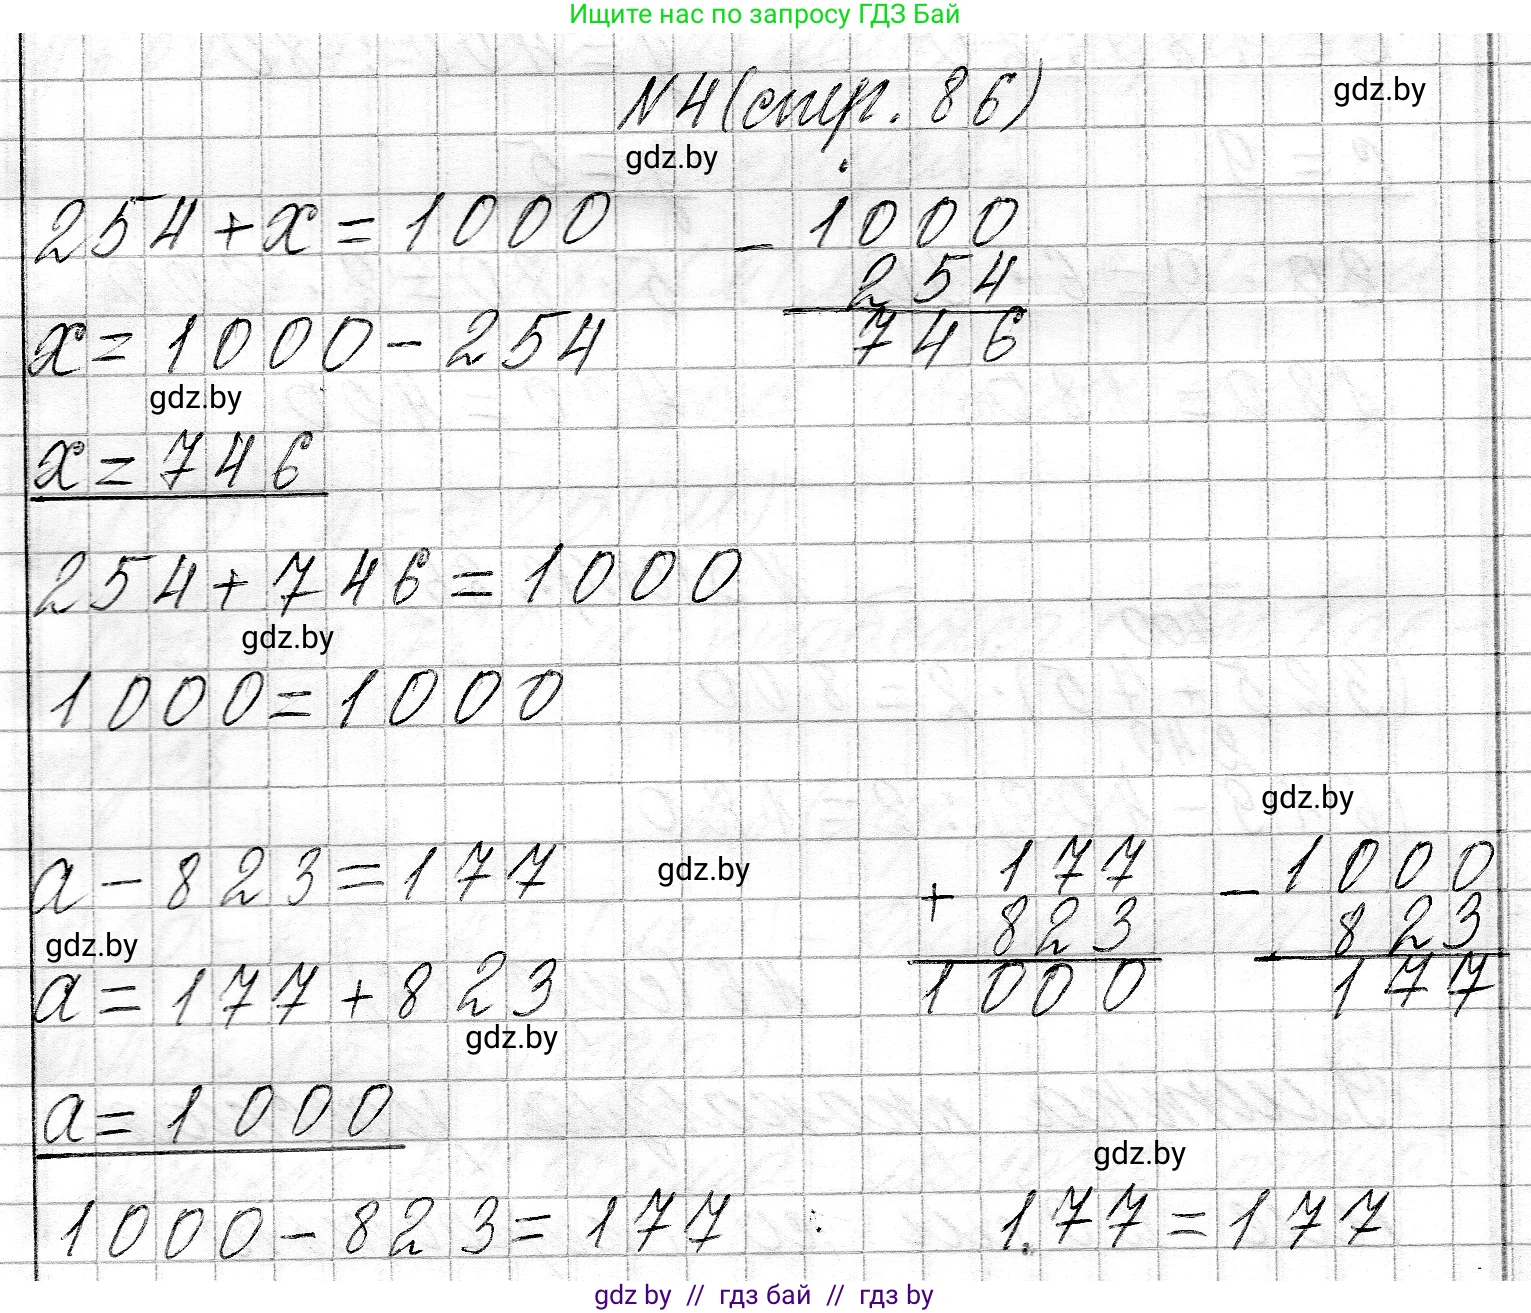 Ищите нас по запросу ГДЗ Бай
№4 (стр. 86)
gdz.by
gdz.by
254 + x = 1000
- 1000
254
746
x = 1000 - 254
gdz.by
x = 746
254 + 746 = 1000
gdz.by
1000 = 1000
gdz.by
a - 823 = 177
gdz.by
+ 177
823
1000
- 1000
823
177
gdz.by
a = 177 + 823
gdz.by
a = 1000
gdz.by
1000 - 823 = 177
177 = 177
gdz by // гдз бай // гдз by